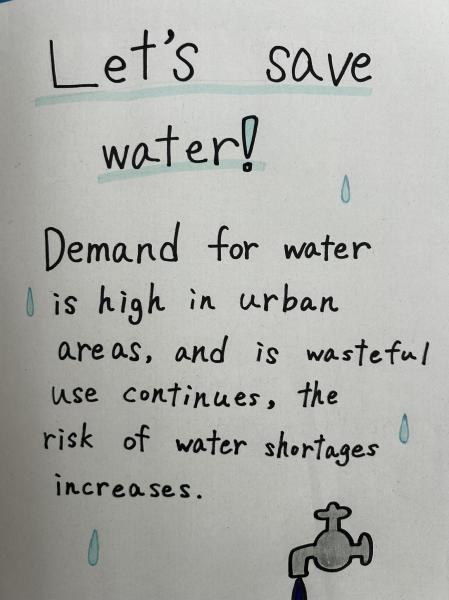 Let's save
water!
Demand for water
is high in urban
areas, and is wasteful
use continues, the
risk of water shortages
increases.